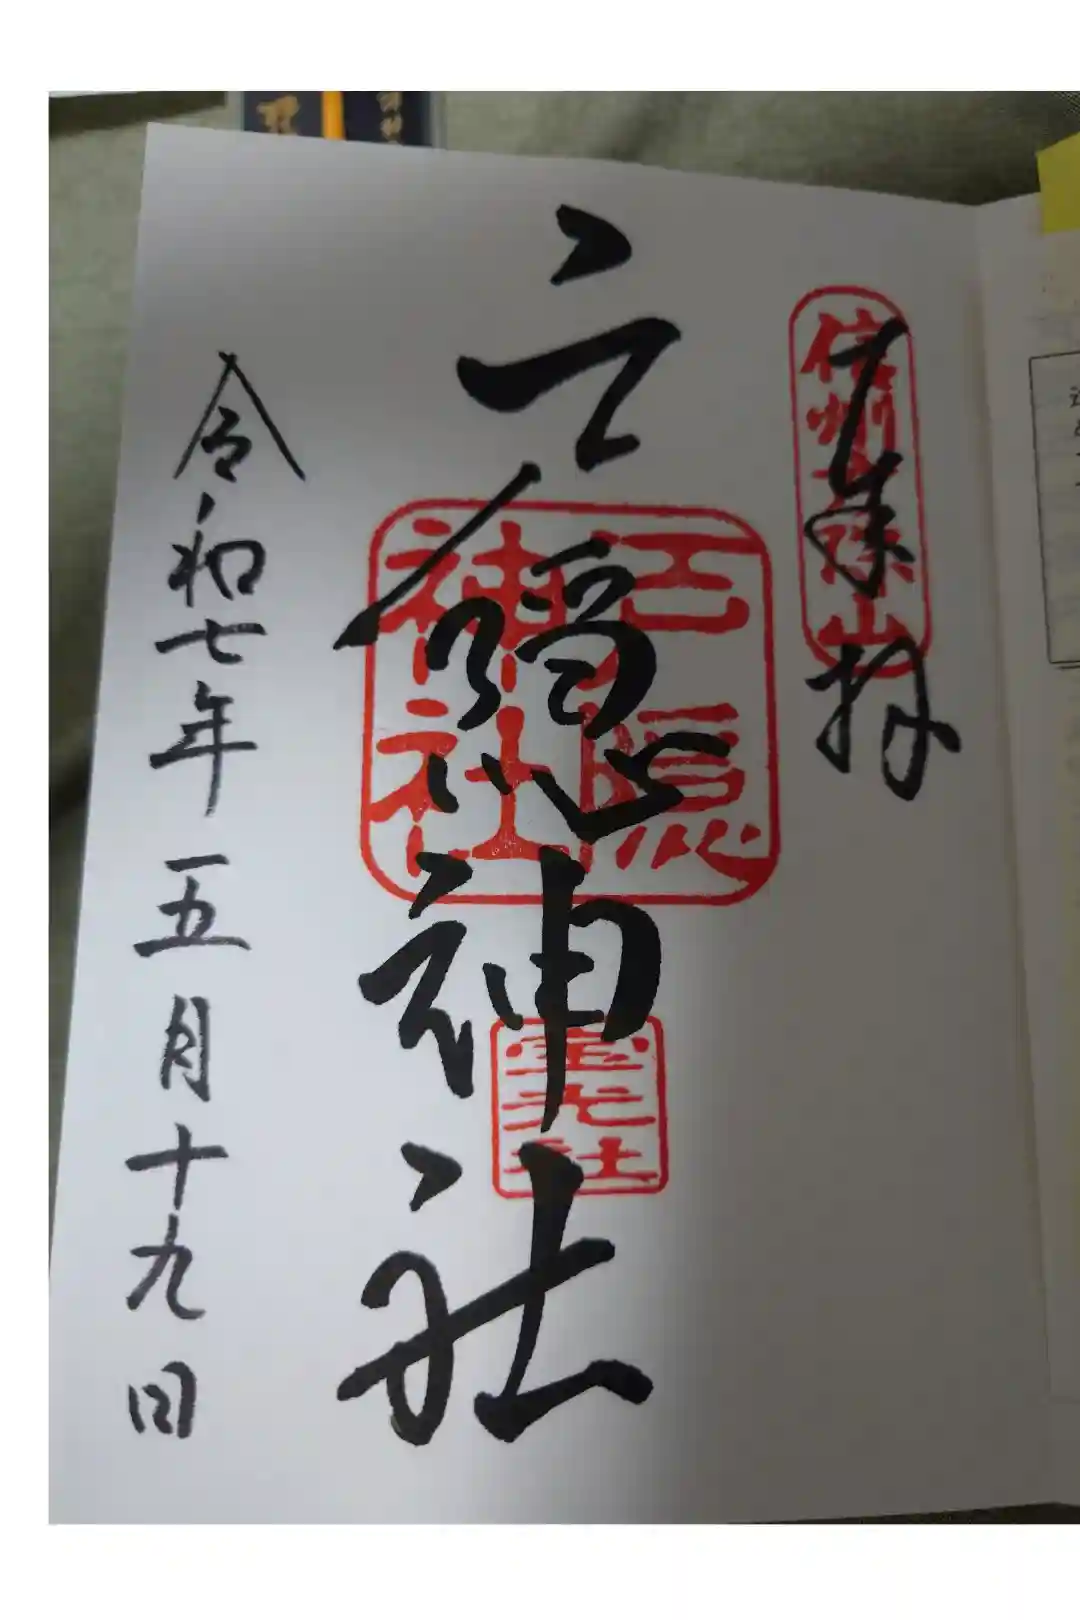 奉拝
信州戸隠山
戸隠神社
戸隠
神社
宝光社
令和七年五月十九日